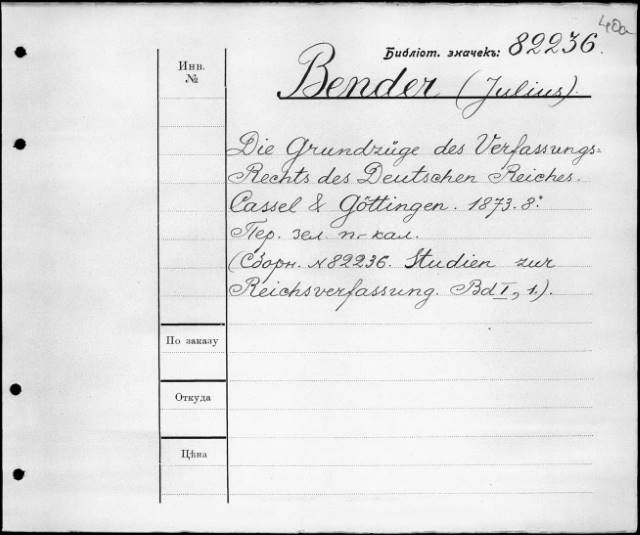 40a
Библіот. значекъ: 82236.
Инв.
№
Bender (Julius).
Die Grundzüge des Verfassungs=
Rechts des Deutschen Reiches.
Cassel & Göttingen. 1873. 8º.
Пер. зел. п.-кал.
(Сборн. №82236. Studien zur
Reichsverfassung. Bd I, 1.).
По заказу
Откуда
Цѣна